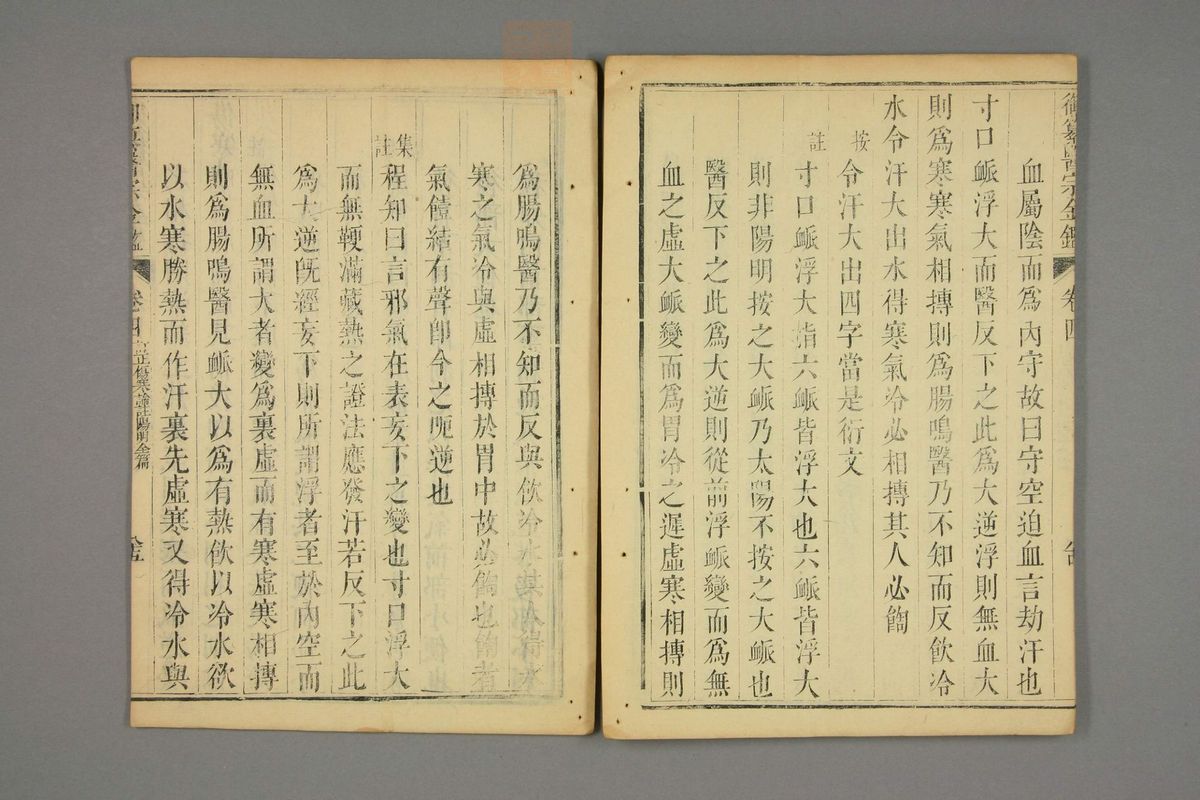 御纂醫宗金鑑 卷四
血屬陰而爲內守故曰守空迫血言劫汗也
寸口脈浮大而醫反下之此爲大逆浮則無血大
則爲寒寒氣相搏則爲腸鳴醫乃不知而反飲冷
水令汗大出水得寒氣冷必相搏其人必䭇
按 令汗大出四字當是衍文
註 寸口脈浮大指六脈皆浮大也六脈皆浮大
則非陽明按之大脈乃太陽不按之大脈也
醫反下之此爲大逆則從前浮脈變而爲無
血之虛大脈變而爲胃冷之遲虛寒相搏則
爲腸鳴醫乃不知而反與飲冷水其人得水
寒之氣冷與虛相搏於胃中故必䭇也䭇者
氣饐結有聲卽今之呃逆也
集註 程知曰言邪氣在表妄下之變也寸口浮大
而無鞕滿藏熱之證法應發汗若反下之此
爲大逆旣經妄下則所謂浮者至於內空而
無血所謂大者變爲裏虛而有寒虛寒相搏
則爲腸鳴醫見脈大以爲有熱飲以冷水欲
以水寒勝熱而作汗裏先虛寒又得冷水與
卷四 訂正傷寒論註陽明全篇